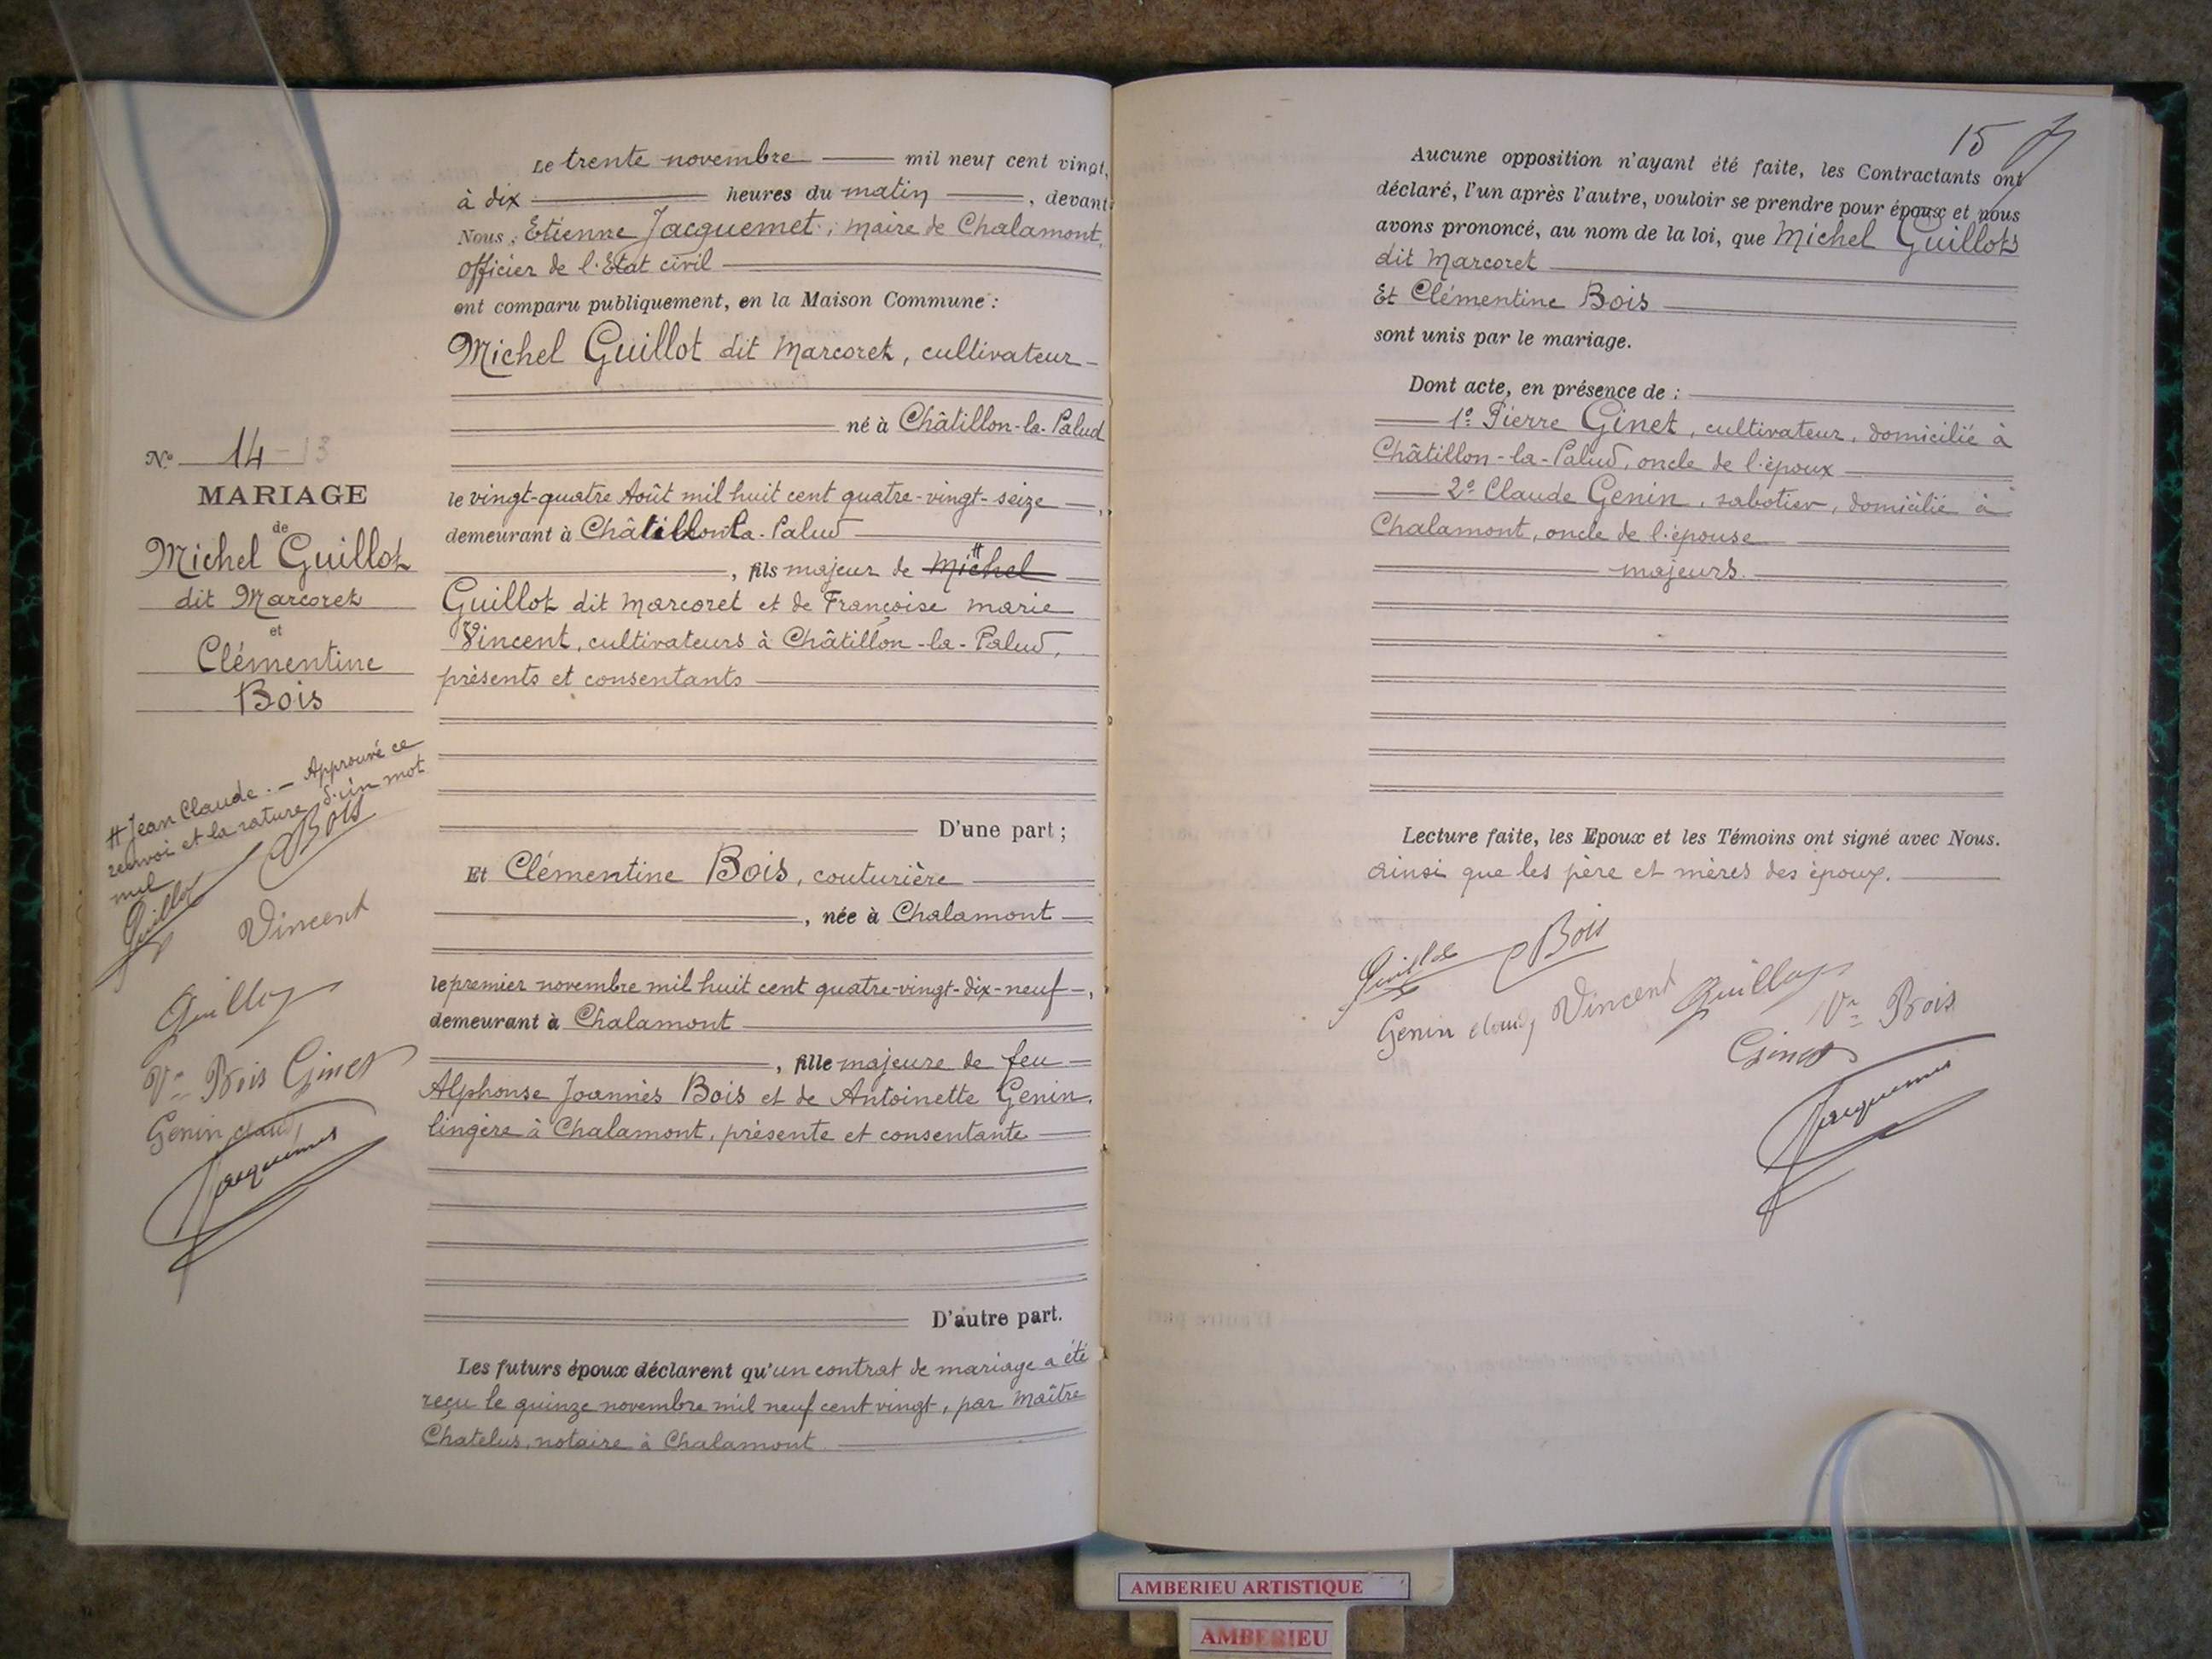 Le trente novembre mil neuf cent vingt,
à dix heures du matin, devant
Nous, Etienne Jacquemet, maire de Chalamont,
officier de l'Etat civil
ont comparu publiquement, en la Maison Commune :
Michel Guillot dit Marcoret, cultivateur
né à Châtillon-la-Palud
le vingt-quatre Août mil huit cent quatre-vingt-seize,
demeurant à Châtillon-la-Palud
, fils majeur de Michel #
Guillot dit Marcoret et de Françoise Marie
Vincent, cultivateurs à Châtillon-la-Palud,
présents et consentants
D'une part ;
Et Clémentine Bois, couturière
, née à Chalamont
le premier novembre mil huit cent quatre-vingt-dix-neuf,
demeurant à Chalamont
, fille majeure de feu
Alphonse Joannès Bois et de Antoinette Genin,
lingère à Chalamont, présente et consentante
D'autre part.
Les futurs époux déclarent qu'un contrat de mariage a été
reçu le quinze novembre mil neuf cent vingt, par Maître
Chatelus, notaire à Chalamont
No 14 - 13
MARIAGE
de
Michel Guillot
dit Marcoret
et
Clémentine
Bois
# Jean Claude. — Approuvé ce
renvoi et la rature d'un mot
nul
Guillot Bois
Vincent
Guillot
Vve Bois Ginet
Genin claude
Jacquemet
15
Aucune opposition n'ayant été faite, les Contractants ont
déclaré, l'un après l'autre, vouloir se prendre pour époux et nous
avons prononcé, au nom de la loi, que Michel Guillot
dit Marcoret
Et Clémentine Bois
sont unis par le mariage.
Dont acte, en présence de :
1º Pierre Ginet, cultivateur, domicilié à
Châtillon-la-Palud, oncle de l'époux
2º Claude Genin, sabotier, domicilié à
Chalamont, oncle de l'épouse
majeurs.
Lecture faite, les Epoux et les Témoins ont signé avec Nous.
ainsi que les père et mères des époux.
Guillot Bois
Genin claude Vincent Guillot Vve Bois
Ginet
Jacquemet
AMBERIEU ARTISTIQUE
AMBERIEU